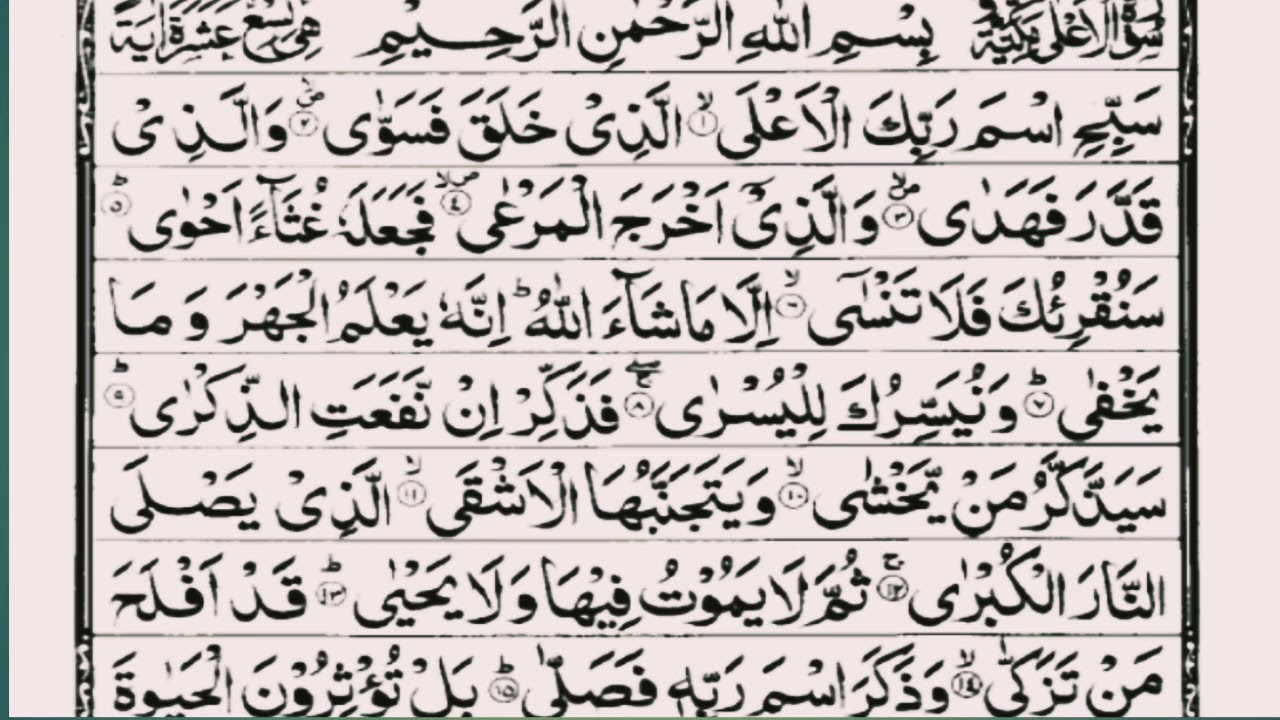 سُوْرَةُ الْاَعْلٰى مَكِّيَّةٌ بِسْمِ اللّٰهِ الرَّحْمٰنِ الرَّحِيْمِ هِىَ تِسْعَ عَشَرَةَ اٰيَةً
سَبِّحِ اسْمَ رَبِّكَ الْاَعْلَى ۙ﴿۱﴾ الَّذِىْ خَلَقَ فَسَوّٰى ۪ۙ﴿۲﴾ وَالَّذِىْ
قَدَّرَ فَهَدٰى ۪ۙ﴿۳﴾ وَالَّذِىْۤ اَخْرَجَ الْمَرْعٰى ۪ۙ﴿۴﴾ فَجَعَلَهٗ غُثَآءً اَحْوٰى ؕ﴿۵﴾
سَنُقْرِئُكَ فَلَا تَنْسٰٓى ۙ﴿۶﴾ اِلَّا مَا شَآءَ اللّٰهُ ؕ اِنَّهٗ يَعْلَمُ الْجَهْرَ وَمَا
يَخْفٰى ؕ﴿۷﴾ وَنُيَسِّرُكَ لِلْيُسْرٰى ۚۖ﴿۸﴾ فَذَكِّرْ اِنْ نَّفَعَتِ الذِّكْرٰى ؕ﴿۹﴾
سَيَذَّكَّرُ مَنْ يَّخْشٰى ۙ﴿۱۰﴾ وَيَتَجَنَّبُهَا الْاَشْقَى ۙ﴿۱۱﴾ الَّذِىْ يَصْلَى
النَّارَ الْكُبْرٰى ۚ﴿۱۲﴾ ثُمَّ لَا يَمُوْتُ فِيْهَا وَلَا يَحْيٰى ؕ﴿۱۳﴾ قَدْ اَفْلَحَ
مَنْ تَزَكّٰى ۙ﴿۱۴﴾ وَذَكَرَ اسْمَ رَبِّهٖ فَصَلّٰى ؕ﴿۱۵﴾ بَلْ تُؤْثِرُوْنَ الْحَيٰوةَ